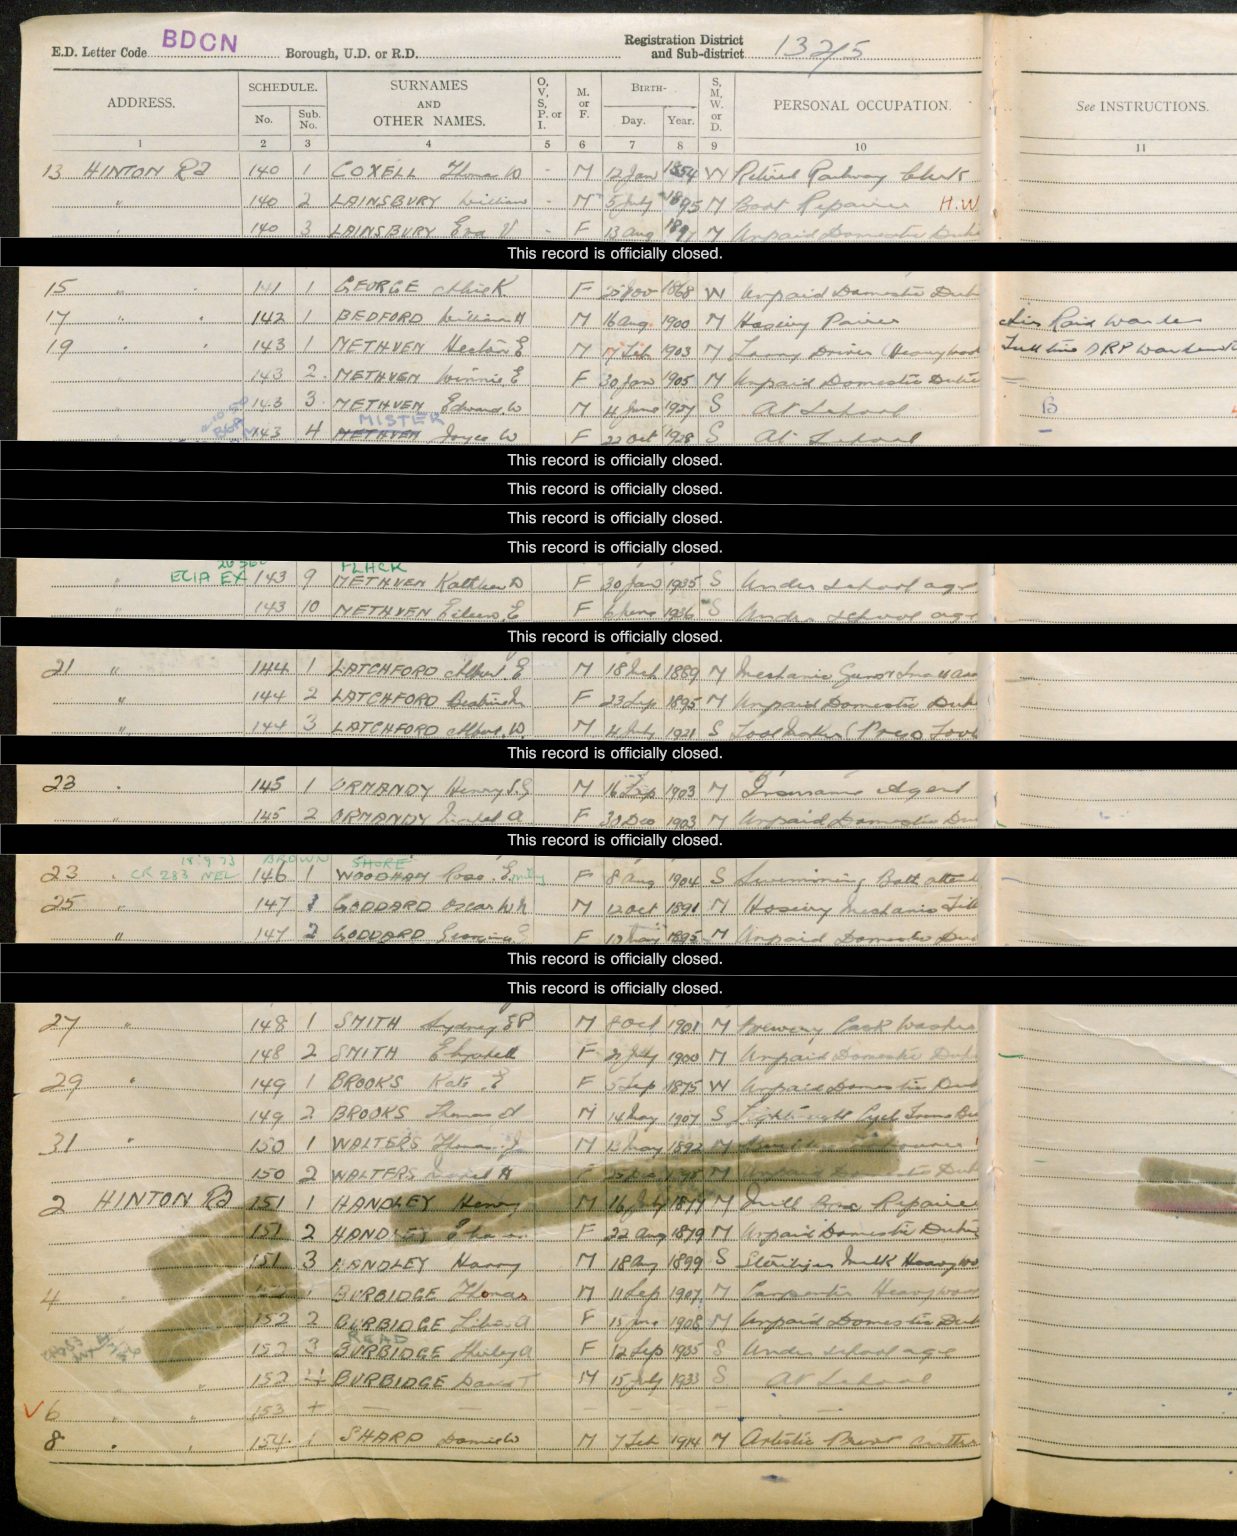 E.D. Letter Code BDCN Borough, U.D. or R.D. Registration District and Sub-district 132/5
ADDRESS. SCHEDULE. No. Sub. No. SURNAMES AND OTHER NAMES. O, V, S, P. or I. M. or F. BIRTH- Day. Year. S, M, W. or D. PERSONAL OCCUPATION. See INSTRUCTIONS.
1 2 3 4 5 6 7 8 9 10 11
13 HINTON Rd 140 1 COXELL Thomas W - M 12 Jan 1854 W Retired Railway Clerk
" 140 2 LAINSBURY William - M 5 July 1895 M Boot Repairer H.W
" 140 3 LAINSBURY Eva V - F 13 Aug 1891 M Unpaid Domestic Duti
This record is officially closed.
15 " 141 1 GEORGE K F Nov 1868 W Unpaid Domestic Duti
17 " 142 1 BEDFORD William H M 16 Aug 1900 M Hosiery Pairer Air Raid Warden
19 " 143 1 METHVEN E M Feb 1903 M Lorry Driver (Heavy Full time ARP Warden
" 143 2 METHVEN Winnie E F 30 Jan 1905 M Unpaid Domestic Duties
" 143 3 METHVEN Edward W M 4 June 1927 S At School B
MISTER
143 4 METHVEN Joyce W F 22 Oct 1928 S At School
This record is officially closed.
This record is officially closed.
This record is officially closed.
This record is officially closed.
FLACK
" EX 143 9 METHVEN Kathleen D F 30 Jan 1935 S Under school age
" 143 10 METHVEN Eileen E F 6 June 1936 S Under school age
This record is officially closed.
21 " 144 1 LATCHFORD Albert E M 18 Feb 1889 M Mechanic
" 144 2 LATCHFORD Beatrice F 23 Sep 1895 M Unpaid Domestic Duti
" 144 3 LATCHFORD Albert W M 4 July 1921 S Tool Maker (Press Tool
This record is officially closed.
23 " 145 1 ORMANDY Henry M 16 Sep 1903 M Insurance Agent
" 145 2 ORMANDY A F 30 Dec 1903 M Unpaid Domestic Du
This record is officially closed.
18.9.73 BROWN SHORE
23 " CR 283 NEL 146 1 WOODHAM Rose Emily F 8 Aug 1904 S Swimming Bath attend
25 " 147 1 GODDARD Oscar W N M 12 Oct 1891 M Hosiery Mechanic
" 147 2 GODDARD F 1895 M Unpaid Domestic Du
This record is officially closed.
This record is officially closed.
27 " 148 1 SMITH Sydney E P M 8 Oct 1901 M Brewery Cask Washer
148 2 SMITH Elizabeth F 1900 M Unpaid Domestic Duti
29 " 149 1 BROOKS Kate E F 5 Sep 1875 W Unpaid Domestic Duti
149 2 BROOKS Thomas M 14 May 1907 S
31 " 150 1 WALTERS Thomas J M 13 May 1892 M
150 2 WALTERS H F M Unpaid Domestic Duti
2 HINTON Rd 151 1 HANDLEY Henry M 16 July 1879 M Repairer
151 2 HANDLEY F 22 Aug 1879 M Unpaid Domestic Duties
151 3 HANDLEY Harry M 18 Aug 1899 S Milk Heavy
4 " 1 BURBIDGE Thomas M 11 Sep 1907 M Carpenter Heavy
" 152 2 BURBIDGE A F 15 June 1908 M Unpaid Domestic Duti
READ
152 3 BURBIDGE Shirley A F 12 Sep 1935 S Under school age
" " 152 4 BURBIDGE David T M 15 July 1933 S At School
6 " " 153 + — — — —
8 " " 154 1 SHARP W M 7 Feb 1914 M Artistic